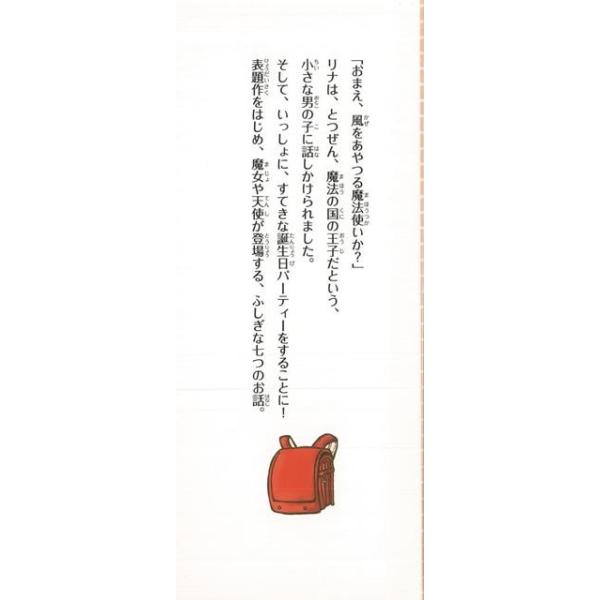 「おまえ、風をあやつる魔法使いか？」
リナは、とつぜん、魔法の国の王子だという、
小さな男の子に話しかけられました。
そして、いっしょに、すてきな誕生日パーティーをすることに！
表題作をはじめ、魔女や天使が登場する、ふしぎな七つのお話。